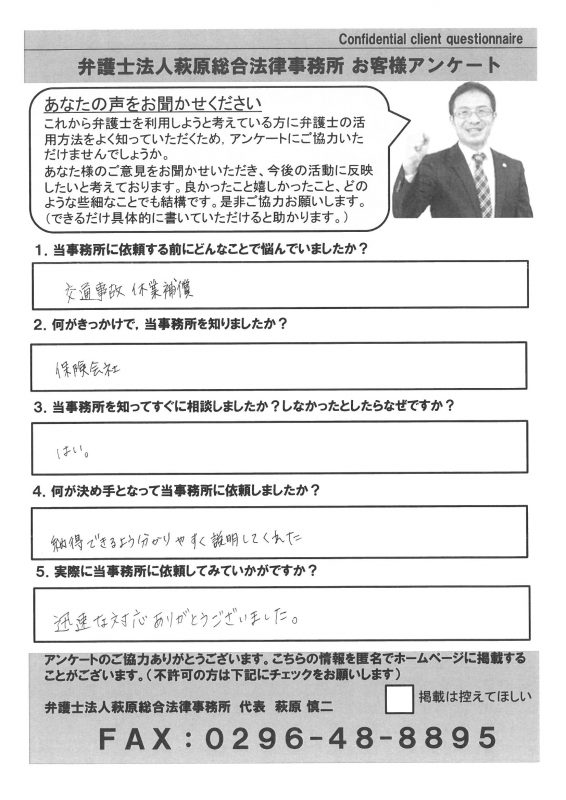 Confidential client questionnaire
弁護士法人萩原総合法律事務所 お客様アンケート
あなたの声をお聞かせください
これから弁護士を利用しようと考えている方に弁護士の活
用方法をよく知っていただくため，アンケートにご協力いた
だけませんでしょうか。
あなた様のご意見をお聞かせいただき、今後の活動に反映
したいと考えております。良かったこと嬉しかったこと、どの
ような些細なことでも結構です。是非ご協力お願いします。
（できるだけ具体的に書いていただけると助かります。）
1．当事務所に依頼する前にどんなことで悩んでいましたか？
交通事故 休業補償
2．何がきっかけで，当事務所を知りましたか？
保険会社
3．当事務所を知ってすぐに相談しましたか？しなかったとしたらなぜですか？
はい。
4．何が決め手となって当事務所に依頼しましたか？
納得できるよう分かりやすく説明してくれた
5．実際に当事務所に依頼してみていかがですか？
迅速な対応ありがとうございました。
アンケートのご協力ありがとうございます。こちらの情報を匿名でホームページに掲載する
ことがございます。（不許可の方は下記にチェックをお願いします）
掲載は控えてほしい
弁護士法人萩原総合法律事務所 代表 萩原 慎二
FAX：0296-48-8895